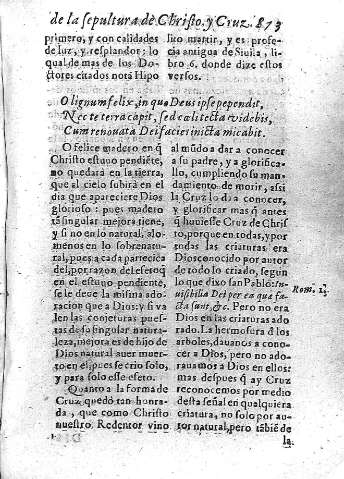 de la sepultura de Christo. y Cruz. 873
primero, y con calidades
de luz, y resplandor: lo
qual de mas de los Do-
ctores citados notá Hipo
lito martir, y es profe-
cia antigua de Siuila, li-
bro 6. donde dize estos
versos.
O lignum felix, in quo Deus ipse pependit,
Nec te terra capit, sed cæli tecta videbis,
Cum renouata Dei facies inicta micabit.
O felice madero en q̃
Christo estuuo pendiẽte,
no quedará en la tierra,
que al cielo subirá en el
dia que apareciere Dios
glorioso: pues madero
tã singular mejora tiene,
y si no en lo natural, alo-
menos en lo sobrenatu-
ral, pues a cada partecica
del, por razon del eseto q̃
en el estuuo pendiente,
se le deue la misma ado-
racion que a Dios: y si va
len las conjeturas pues-
tas de so singular natura-
leza, mejora es de hijo de
Dios natural auer muer-
to en el, pues se crio solo,
y para solo esse eseto.
Quanto a la forma de
Cruz quedó tan honra-
da, que como Christo
nuestro Redentor vino
al mũdo a dar a conocer
a su padre, y a glorifica-
llo, cumpliendo su man-
damiento de morir, assi
la Cruz lo da a conocer,
y glorificar mas q̃ antes
q̃ huuiesse Cruz de Chris
to, porque en todas, y por
todas las criaturas era
Dios conocido por autor
de todo lo criado, segun
lo que dixo san Pablo: In-
uisibilia Dei per ea quæ fa-
cta sunt, &c. Pero no era
Dios en las criaturas ado
rado. La hermosura d̃ los
arboles, dauanos a cono-
cer a Dios, pero no ado-
rauamos a Dios en ellos:
mas despues q̃ ay Cruz
reconocemos por medio
desta señal en qualquiera
criatura, no solo por au-
tor natural, pero tãbiẽ de
Rom. 1.
la